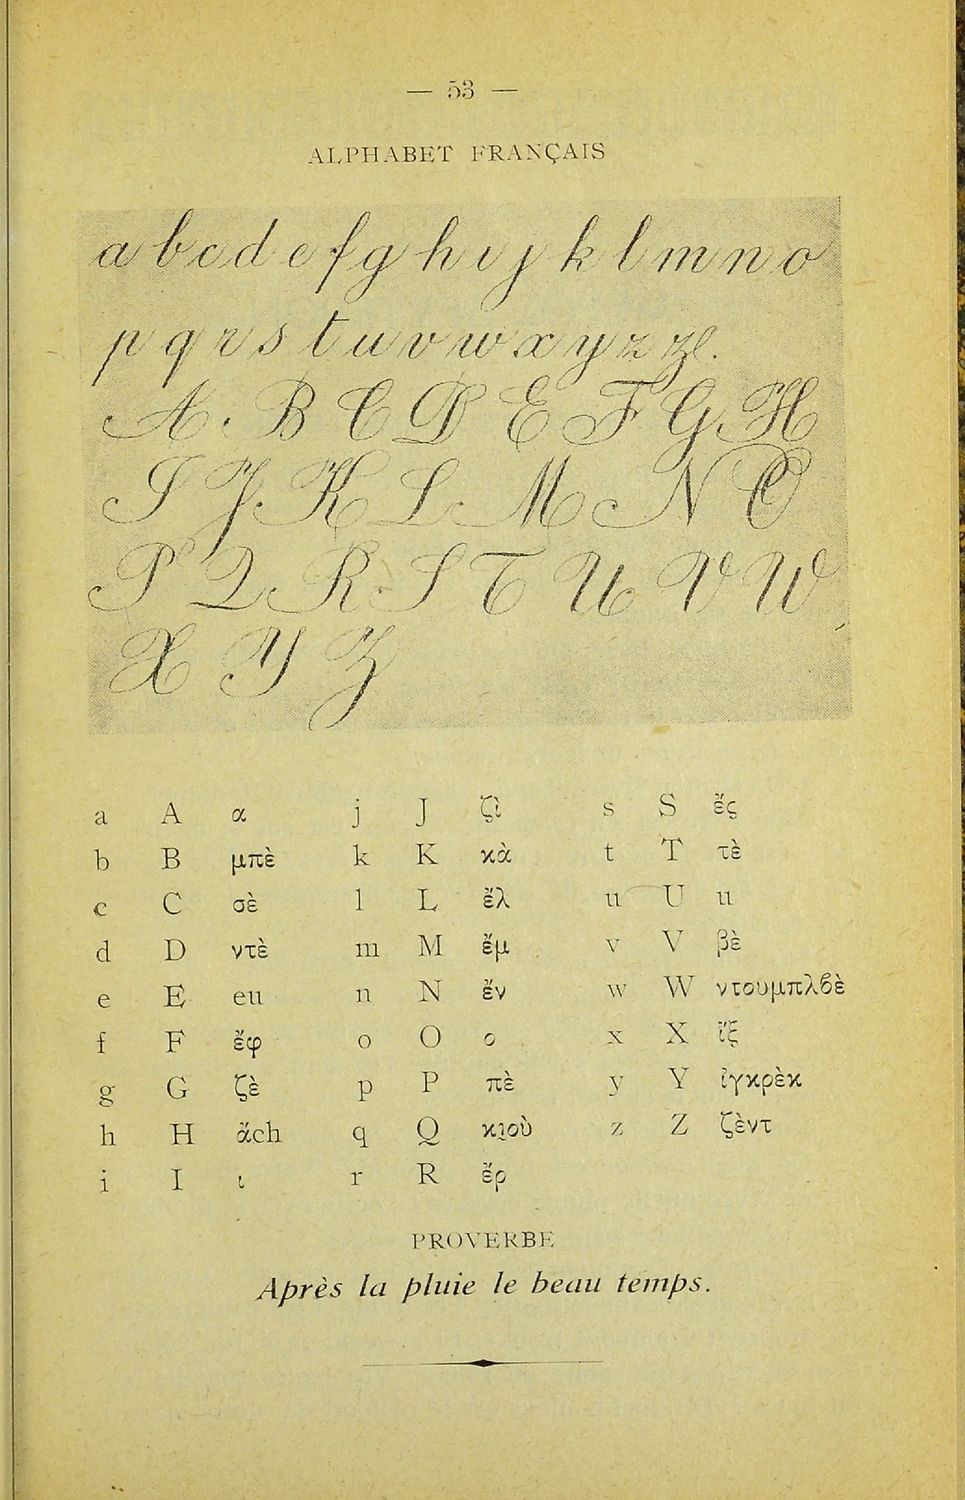 — 53 —
ALPHABET FRANÇAIS
a b c d e f g h i j k l m n o
p q r s t u v w x y z
A. B C D E F G H
I J K L M N O
P Q R S T U V W
X Y Z
a A α j J ζὶ s S ἔς
b B μπὲ k K κὰ t T τὲ
c C σὲ l L ἔλ u U u
d D ντὲ m M ἔμ v V βὲ
e E eu n N ἔν w W ντουμπλϐὲ
f F ἔφ o O ο x X ἴξ
g G ζὲ p P πὲ y Y ἰγκρὲκ
h H ἄch q Q κιοὺ z Z ζὲντ
i I ι r R ἔρ
PROVERBE
Après la pluie le beau temps.